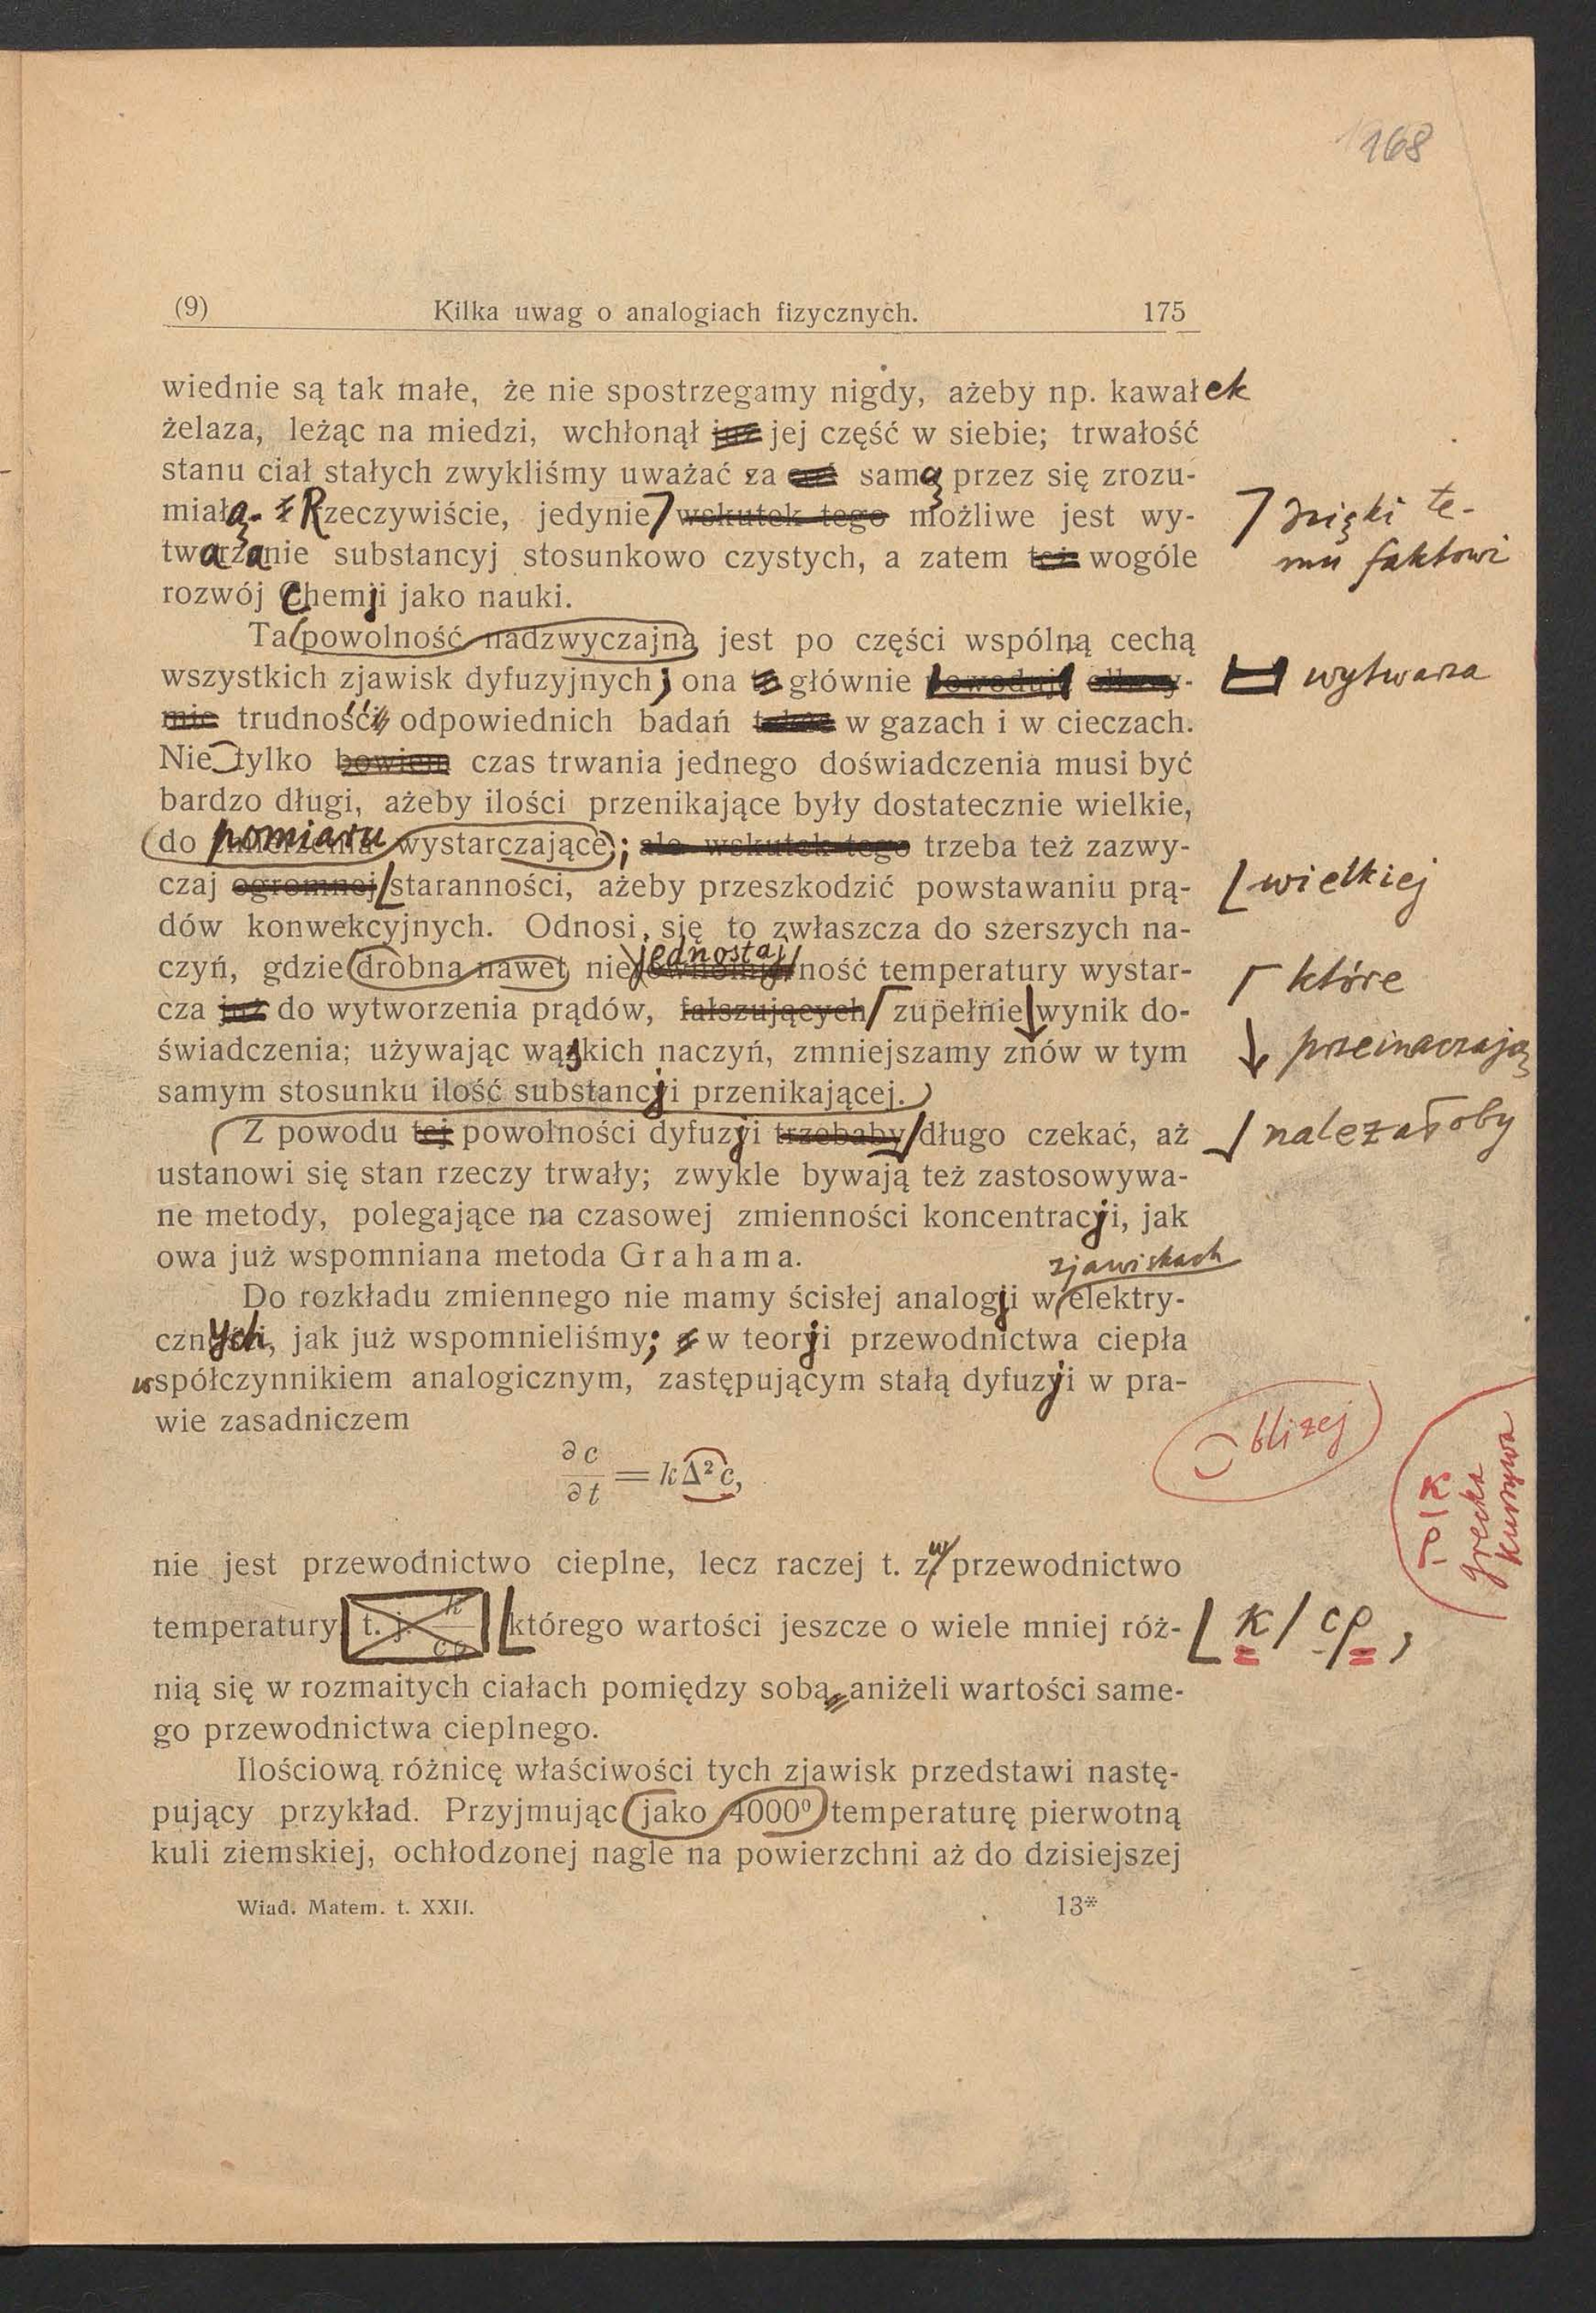 168
(9) Kilka uwag o analogiach fizycznych. 175
wiednie są tak małe, że nie spostrzegamy nigdy, ażeby np. kawałek
żelaza, leżąc na miedzi, wchłonął już jej część w siebie; trwałość
stanu ciał stałych zwykliśmy uważać za samą przez się zrozu-
miałą. Rzeczywiście, jedynie wskutek tego możliwe jest wy-
twarzanie substancyj stosunkowo czystych, a zatem też wogóle
dzięki te-
mu faktowi
rozwój Chemji jako nauki.
Ta powolność nadzwyczajna jest po części wspólną cechą
wszystkich zjawisk dyfuzyjnych; ona to głównie powoduje olbrzy-
wytwarza
mie trudności odpowiednich badań także w gazach i w cieczach.
Nie tylko bowiem czas trwania jednego doświadczenia musi być
bardzo długi, ażeby ilości przenikające były dostatecznie wielkie,
do pomiaru wystarczające; ale wskutek tego trzeba też zazwy-
czaj ogromnej staranności, ażeby przeszkodzić powstawaniu prą-
wielkiej
dów konwekcyjnych. Odnosi się to zwłaszcza do szerszych na-
czyń, gdzie drobna nawet niejednostajność temperatury wystar-
które
cza już do wytworzenia prądów, fałszujących zupełnie wynik do-
świadczenia; używając wąskich naczyń, zmniejszamy znów w tym
przeinaczają
samym stosunku ilość substancji przenikającej.
Z powodu tej powolności dyfuzji trzebaby długo czekać, aż
należałoby
ustanowi się stan rzeczy trwały; zwykle bywają też zastosowywa-
ne metody, polegające na czasowej zmienności koncentracji, jak
owa już wspomniana metoda Grahama.
zjawiskach
Do rozkładu zmiennego nie mamy ścisłej analogji w elektry-
cznych, jak już wspomnieliśmy; w teorji przewodnictwa ciepła
współczynnikiem analogicznym, zastępującym stałą dyfuzji w pra-
wie zasadniczem
bliżej
∂c/∂t = kΔ²c,
κ | ρ |
grecka
kursywa
nie jest przewodnictwo cieplne, lecz raczej t. zw. przewodnictwo
temperatury t. j. k/cρ którego wartości jeszcze o wiele mniej róż-
κ/cρ,
nią się w rozmaitych ciałach pomiędzy sobą aniżeli wartości same-
go przewodnictwa cieplnego.
Ilościową różnicę właściwości tych zjawisk przedstawi nastę-
pujący przykład. Przyjmując jako 4000⁰ temperaturę pierwotną
kuli ziemskiej, ochłodzonej nagle na powierzchni aż do dzisiejszej
Wiad. Matem. t. XXII. 13*